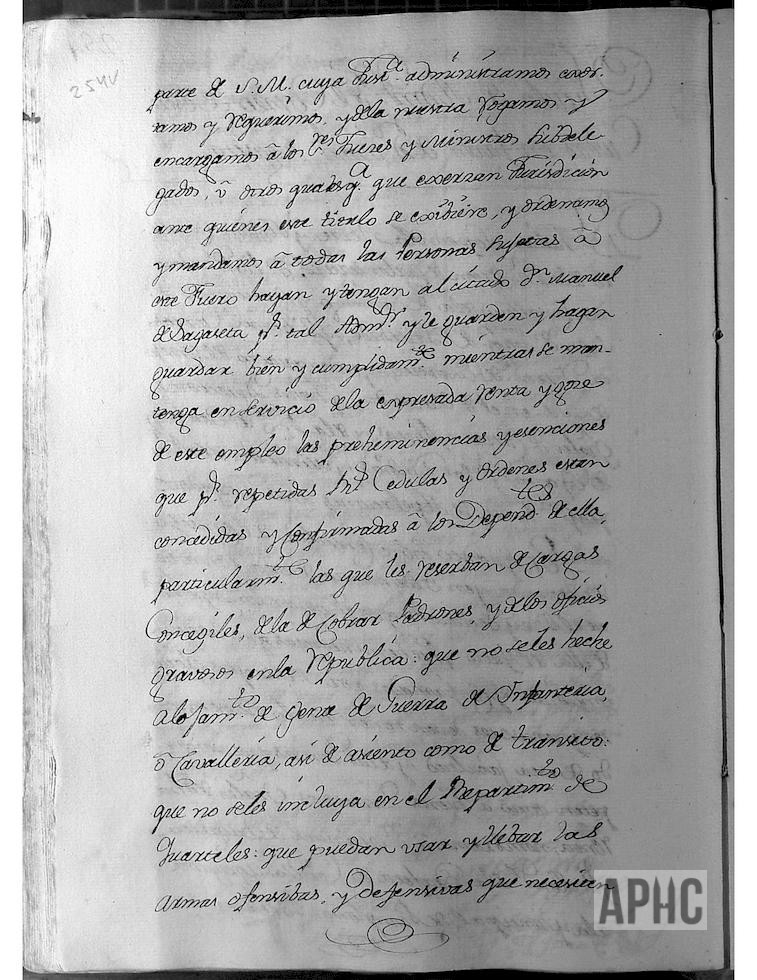 254v
parte de S.M. cuya Just.ª administramos exor-
tamos y requerimos, y de la nuestra rogamos y
encargamos à los S.res Jueces y Ministros Subdele
gados, ù otros qualesq.ª que exerzan Jurisdicion
ante quienes este titulo se exibiere, y ordenamos
y mandamos à todas las Personas sujetas à
este Fuero hayan y tengan al citado D.n Manuel
de Sagaseta p.r tal Adm.or y le guarden y hagan
guardar bien y cumplidam.te mientras se man-
tenga en servicio de la expresada renta y goze
de este empleo las preheminencias y esenciones
que p.r repetidas R.s Cedulas y Ordenes estan
concedidas y confirmadas à los Depend.tes de ella,
particularm.te las que les reserban de Cargas
Concegiles, de la de Cobrar Padrones, y de los oficios
gravosos en la republica: que no se les heche
alojam.to de gente de Guerra de Infanteria,
ò Cavalleria, asi de asiento como de transito:
que no se les incluya en el Repartim.to de
Quarteles: que puedan usar y llebar las
armas ofensibas, y defensivas que necesiten
APHC